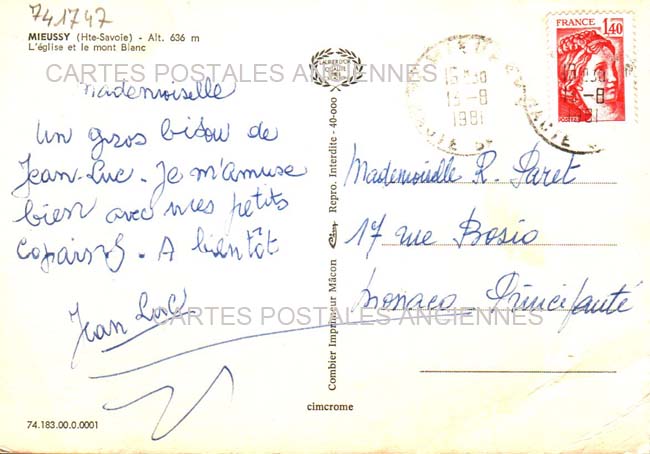 741747
MIEUSSY (Hte-Savoie) - Alt. 636 m
L'église et le mont Blanc
CARTES POSTALES ANCIENNES
Mademoiselle
Un gros bisou de
Jean-Luc. Je m'amuse
bien avec mes petits
copains. A bientôt
Jean Luc
74.183.00.0.0001
Combier Imprimeur Mâcon
Repro. Interdite - 40-000
cimcrome
FRANCE
1,40
15-8
1981
Mademoiselle R. Paret
17 rue Bosio
Monaco - Principauté
CARTES POSTALES ANCIENNES